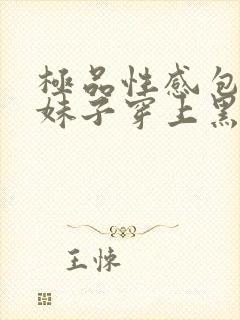 極品性感包
妹子穿上黑
王悚